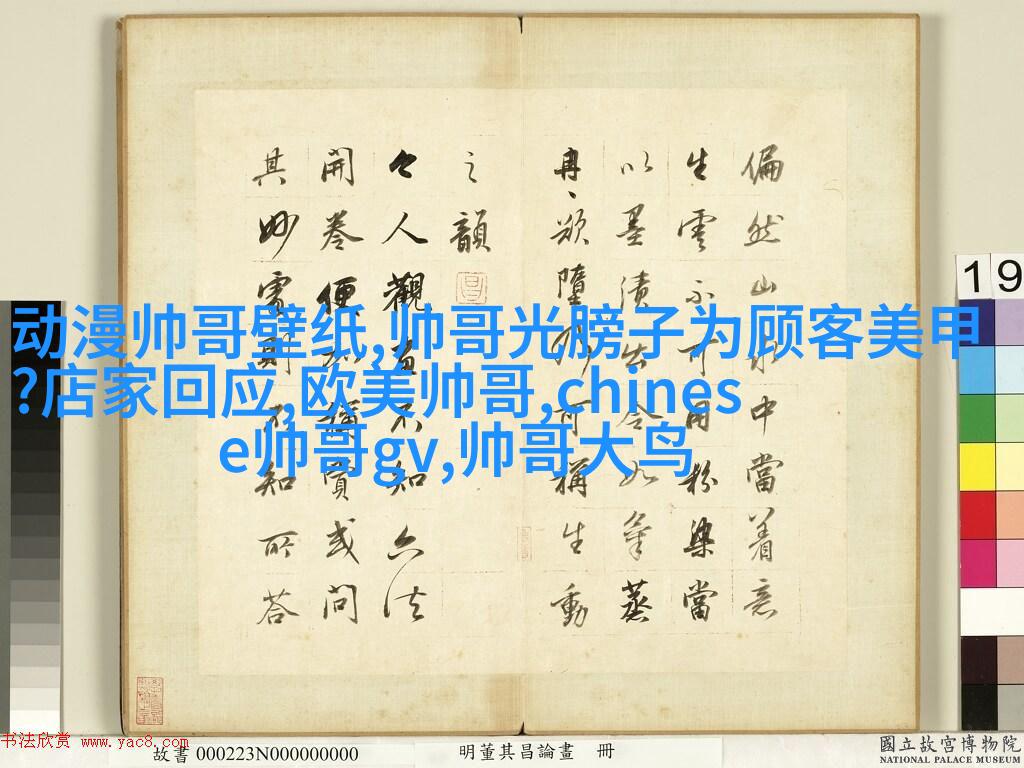 动漫帅哥壁纸,帅哥光膀子为顾客美甲
?店家回应,欧美帅哥,chines
e帅哥gv,帅哥大鸟
偏然山水中當着意
生雲不可用粉染當
以墨漬出令如氣蒸
冉〻欲墮乃可稱生動
之韻
今人觀畫不知六法
開卷便加稱賞或問
其妙處則不知所答
19
书法欣赏 www.yac8.com
故書 000223N000000000
明董其昌論畫 冊
國立故宮博物院
NATIONAL PALACE MUSEUM